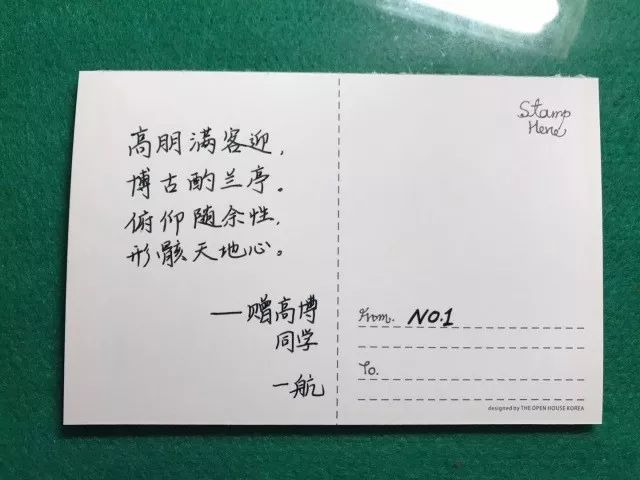 高朋满客迎，
博古酌兰亭。
俯仰随余性，
形骸天地心。
——赠高博
同学
一航
Stamp
Here
From. NO.1
To.
designed by THE OPEN HOUSE KOREA